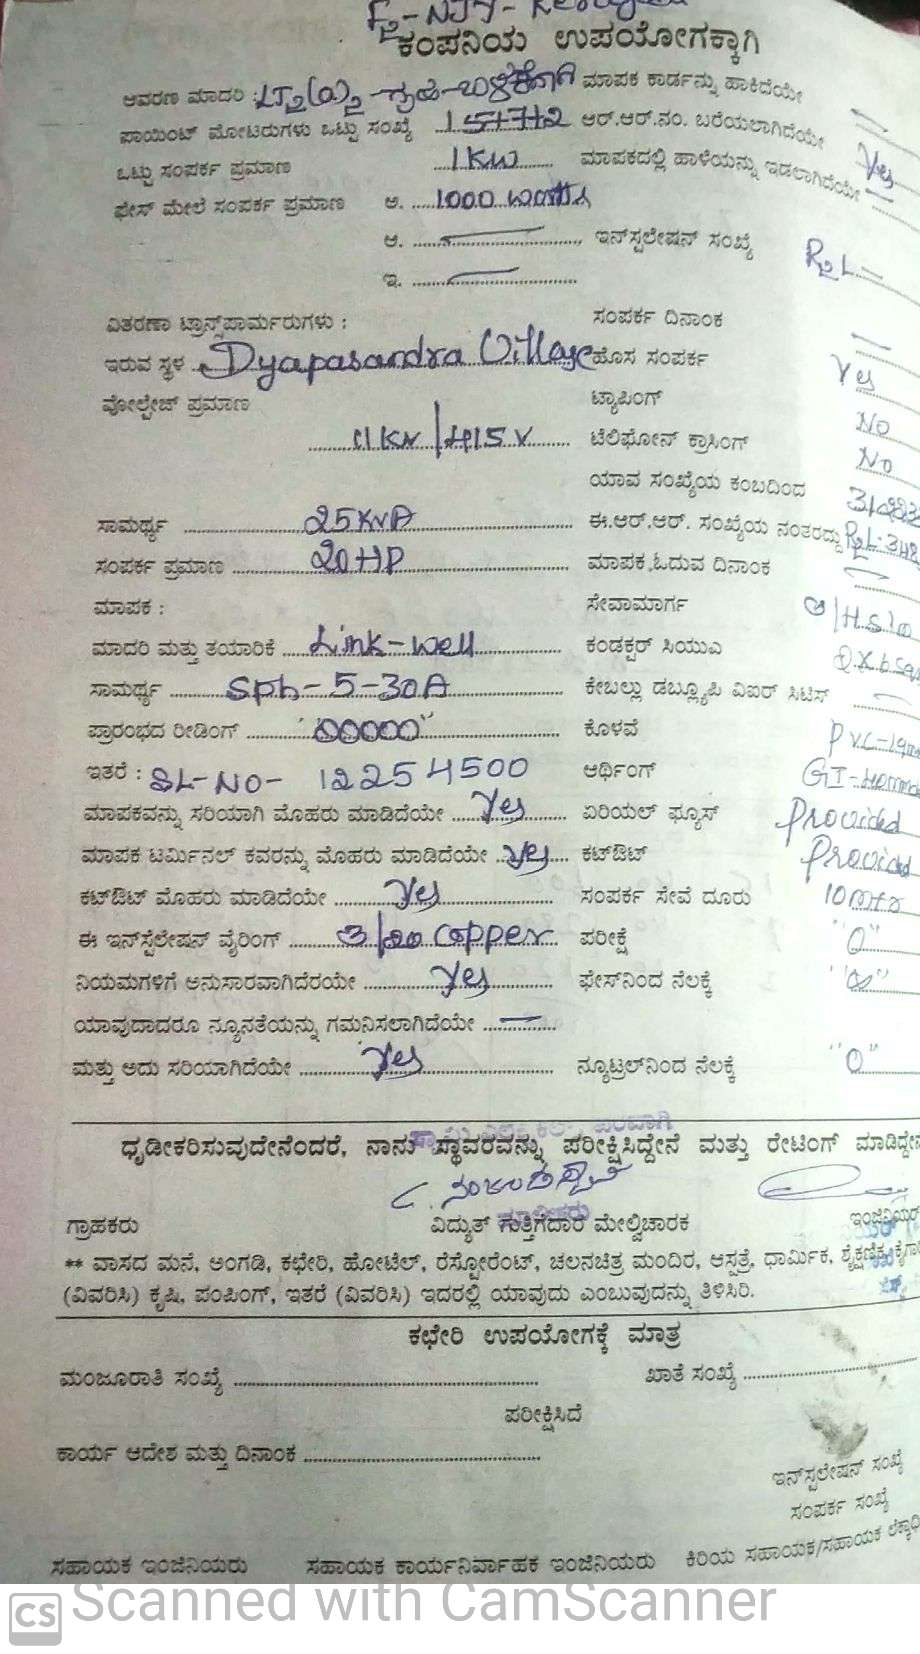 F2-NJY-
ಕಂಪನಿಯ ಉಪಯೋಗಕ್ಕಾಗಿ
ಆವರಣ ಮಾದರಿ : LT2(a)2 - ಗೃಹ-ಬಳಕೆಗಾಗಿ ಮಾಪಕ ಕಾರ್ಡನ್ನು ಹಾಕಿದೆಯೇ
ಪಾಯಿಂಟ್ ಮೋಟರುಗಳು ಒಟ್ಟು ಸಂಖ್ಯೆ ಆರ್.ಆರ್.ನಂ. ಬರೆಯಲಾಗಿದೆಯೇ Yes
ಒಟ್ಟು ಸಂಪರ್ಕ ಪ್ರಮಾಣ 1KW ಮಾಪಕದಲ್ಲಿ ಹಾಳೆಯನ್ನು ಇಡಲಾಗಿದೆಯೇ
ಫೇಸ್ ಮೇಲೆ ಸಂಪರ್ಕ ಪ್ರಮಾಣ ಅ. 1000 watts
ಆ. ಇನ್‌ಸ್ಟಲೇಷನ್ ಸಂಖ್ಯೆ R2L
ಇ.
ವಿತರಣಾ ಟ್ರಾನ್ಸ್‌ಪಾರ್ಮರುಗಳು : ಸಂಪರ್ಕ ದಿನಾಂಕ
ಇರುವ ಸ್ಥಳ Dyapasandra Village ಹೊಸ ಸಂಪರ್ಕ Yes
ವೋಲ್ಟೇಜ್ ಪ್ರಮಾಣ ಟ್ಯಾಪಿಂಗ್ No
11KV/415V ಟೆಲಿಫೋನ್ ಕ್ರಾಸಿಂಗ್ No
ಯಾವ ಸಂಖ್ಯೆಯ ಕಂಬದಿಂದ
ಸಾಮರ್ಥ್ಯ 25KVA ಈ.ಆರ್.ಆರ್. ಸಂಖ್ಯೆಯ ನಂತರದ್ದು
ಸಂಪರ್ಕ ಪ್ರಮಾಣ 20HP ಮಾಪಕ ಓದುವ ದಿನಾಂಕ
ಮಾಪಕ : ಸೇವಾಮಾರ್ಗ
ಮಾದರಿ ಮತ್ತು ತಯಾರಿಕೆ Link-Well ಕಂಡಕ್ಟರ್ ಸಿಯುಎ
ಸಾಮರ್ಥ್ಯ Sph-5-30A ಕೇಬಲ್ಲು ಡಬ್ಲ್ಯೂಪಿ ವಿಐರ್ ಸಿಟಿಸ್
ಪ್ರಾರಂಭದ ರೀಡಿಂಗ್ "00000" ಕೊಳವೆ
ಇತರೆ : SL-NO- 12254500 ಆರ್ಥಿಂಗ್
ಮಾಪಕವನ್ನು ಸರಿಯಾಗಿ ಮೊಹರು ಮಾಡಿದೆಯೇ Yes ಏರಿಯಲ್ ಫ್ಯೂಸ್ Provided
ಮಾಪಕ ಟರ್ಮಿನಲ್ ಕವರನ್ನು ಮೊಹರು ಮಾಡಿದೆಯೇ Yes ಕಟ್‌ಔಟ್ Provided
ಕಟ್‌ಔಟ್ ಮೊಹರು ಮಾಡಿದೆಯೇ Yes ಸಂಪರ್ಕ ಸೇವೆ ದೂರು 10mtr
ಈ ಇನ್‌ಸ್ಟಲೇಷನ್ ವೈರಿಂಗ್ 3/20 Copper ಪರೀಕ್ಷೆ "0"
ನಿಯಮಗಳಿಗೆ ಅನುಸಾರವಾಗಿದೆರಯೇ Yes ಫೇಸ್‌ನಿಂದ ನೆಲಕ್ಕೆ
ಯಾವುದಾದರೂ ನ್ಯೂನತೆಯನ್ನು ಗಮನಿಸಲಾಗಿದೆಯೇ
ಮತ್ತು ಅದು ಸರಿಯಾಗಿದೆಯೇ Yes ನ್ಯೂಟ್ರಲ್‌ನಿಂದ ನೆಲಕ್ಕೆ "0"
ಧೃಡೀಕರಿಸುವುದೇನೆಂದರೆ, ನಾನು ಸ್ಥಾವರವನ್ನು ಪರೀಕ್ಷಿಸಿದ್ದೇನೆ ಮತ್ತು ರೇಟಿಂಗ್ ಮಾಡಿದ್ದೇನೆ
ಗ್ರಾಹಕರು ವಿದ್ಯುತ್ ಗುತ್ತಿಗೆದಾರ ಮೇಲ್ವಿಚಾರಕ ಇಂಜಿನಿಯರ್
** ವಾಸದ ಮನೆ, ಅಂಗಡಿ, ಕಛೇರಿ, ಹೋಟೆಲ್, ರೆಸ್ಟೋರೆಂಟ್, ಚಲನಚಿತ್ರ ಮಂದಿರ, ಆಸ್ಪತ್ರೆ, ಧಾರ್ಮಿಕ, ಶೈಕ್ಷಣಿಕ,
(ವಿವರಿಸಿ) ಕೃಷಿ, ಪಂಪಿಂಗ್, ಇತರೆ (ವಿವರಿಸಿ) ಇದರಲ್ಲಿ ಯಾವುದು ಎಂಬುವುದನ್ನು ತಿಳಿಸಿರಿ.
ಕಛೇರಿ ಉಪಯೋಗಕ್ಕೆ ಮಾತ್ರ
ಮಂಜೂರಾತಿ ಸಂಖ್ಯೆ ಖಾತೆ ಸಂಖ್ಯೆ
ಪರೀಕ್ಷಿಸಿದೆ
ಕಾರ್ಯ ಆದೇಶ ಮತ್ತು ದಿನಾಂಕ
ಇನ್‌ಸ್ಟಲೇಷನ್ ಸಂಖ್ಯೆ
ಸಂಪರ್ಕ ಸಂಖ್ಯೆ
ಸಹಾಯಕ ಇಂಜಿನಿಯರು ಸಹಾಯಕ ಕಾರ್ಯನಿರ್ವಾಹಕ ಇಂಜಿನಿಯರು ಕಿರಿಯ ಸಹಾಯಕ/ಸಹಾಯಕ
CS Scanned with CamScanner